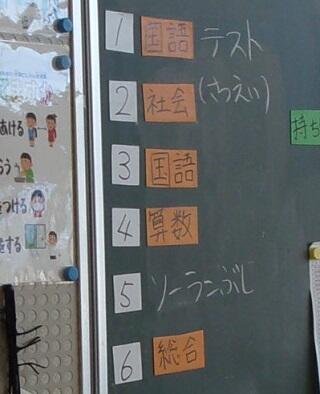 1 国語 テスト
2 社会 (さつえい)
3 国語
4 算数
5 ソーランぶし
6 総合
持ち
あける
らう
をつける
をする